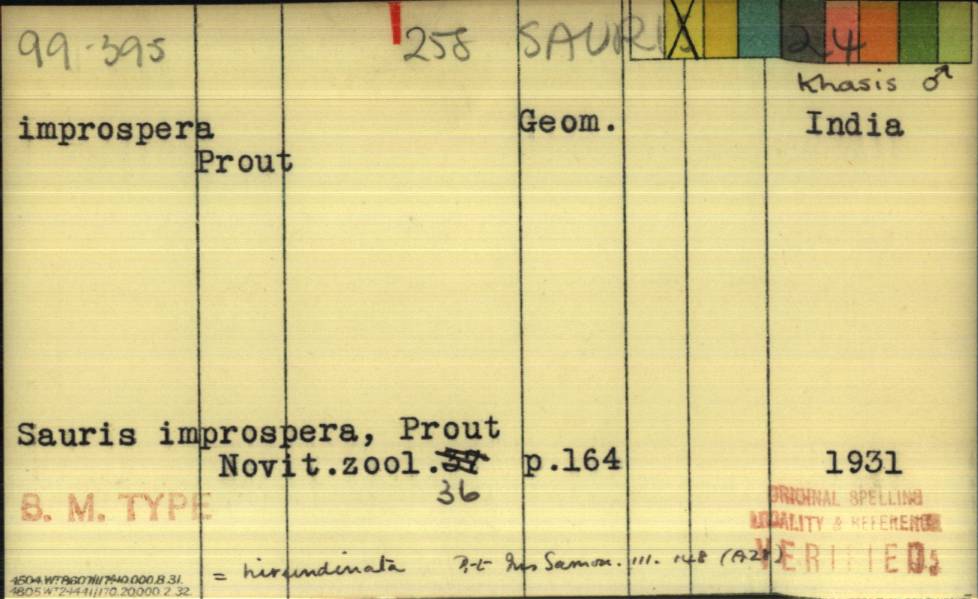 99-395 258 SAURIS 24
Khasis ♂
improspera Geom. India
Prout
Sauris improspera, Prout
Novit.zool.37 p.164 1931
36
B. M. TYPE
ORIGINAL SPELLING
LOCALITY & REFERENCE
VERIFIED
= hirundinata Ins Samoa. 111. 148 (A28)
4504.WT 20.000.8.31.
4805 WT24441/170.20,000.2.32.